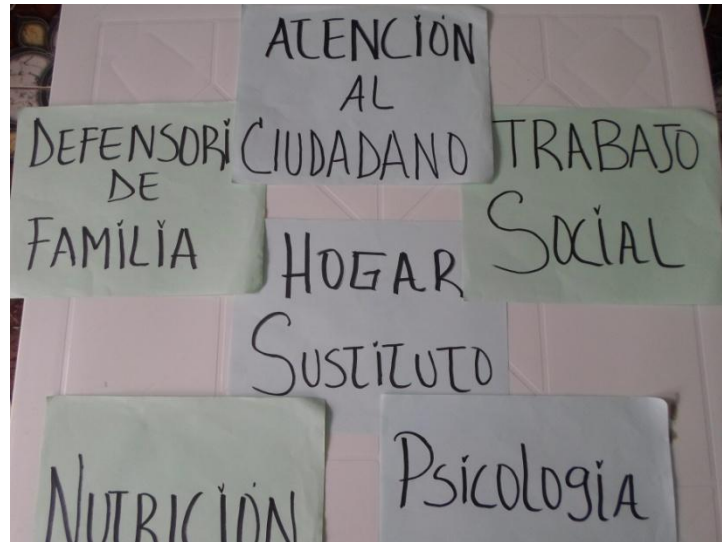 ATENCIÓN
AL
CIUDADANO
DEFENSORI
DE
FAMILIA
TRABAJO
SOCIAL
HOGAR
SUSTITUTO
NUTRICIÓN
Psicologia